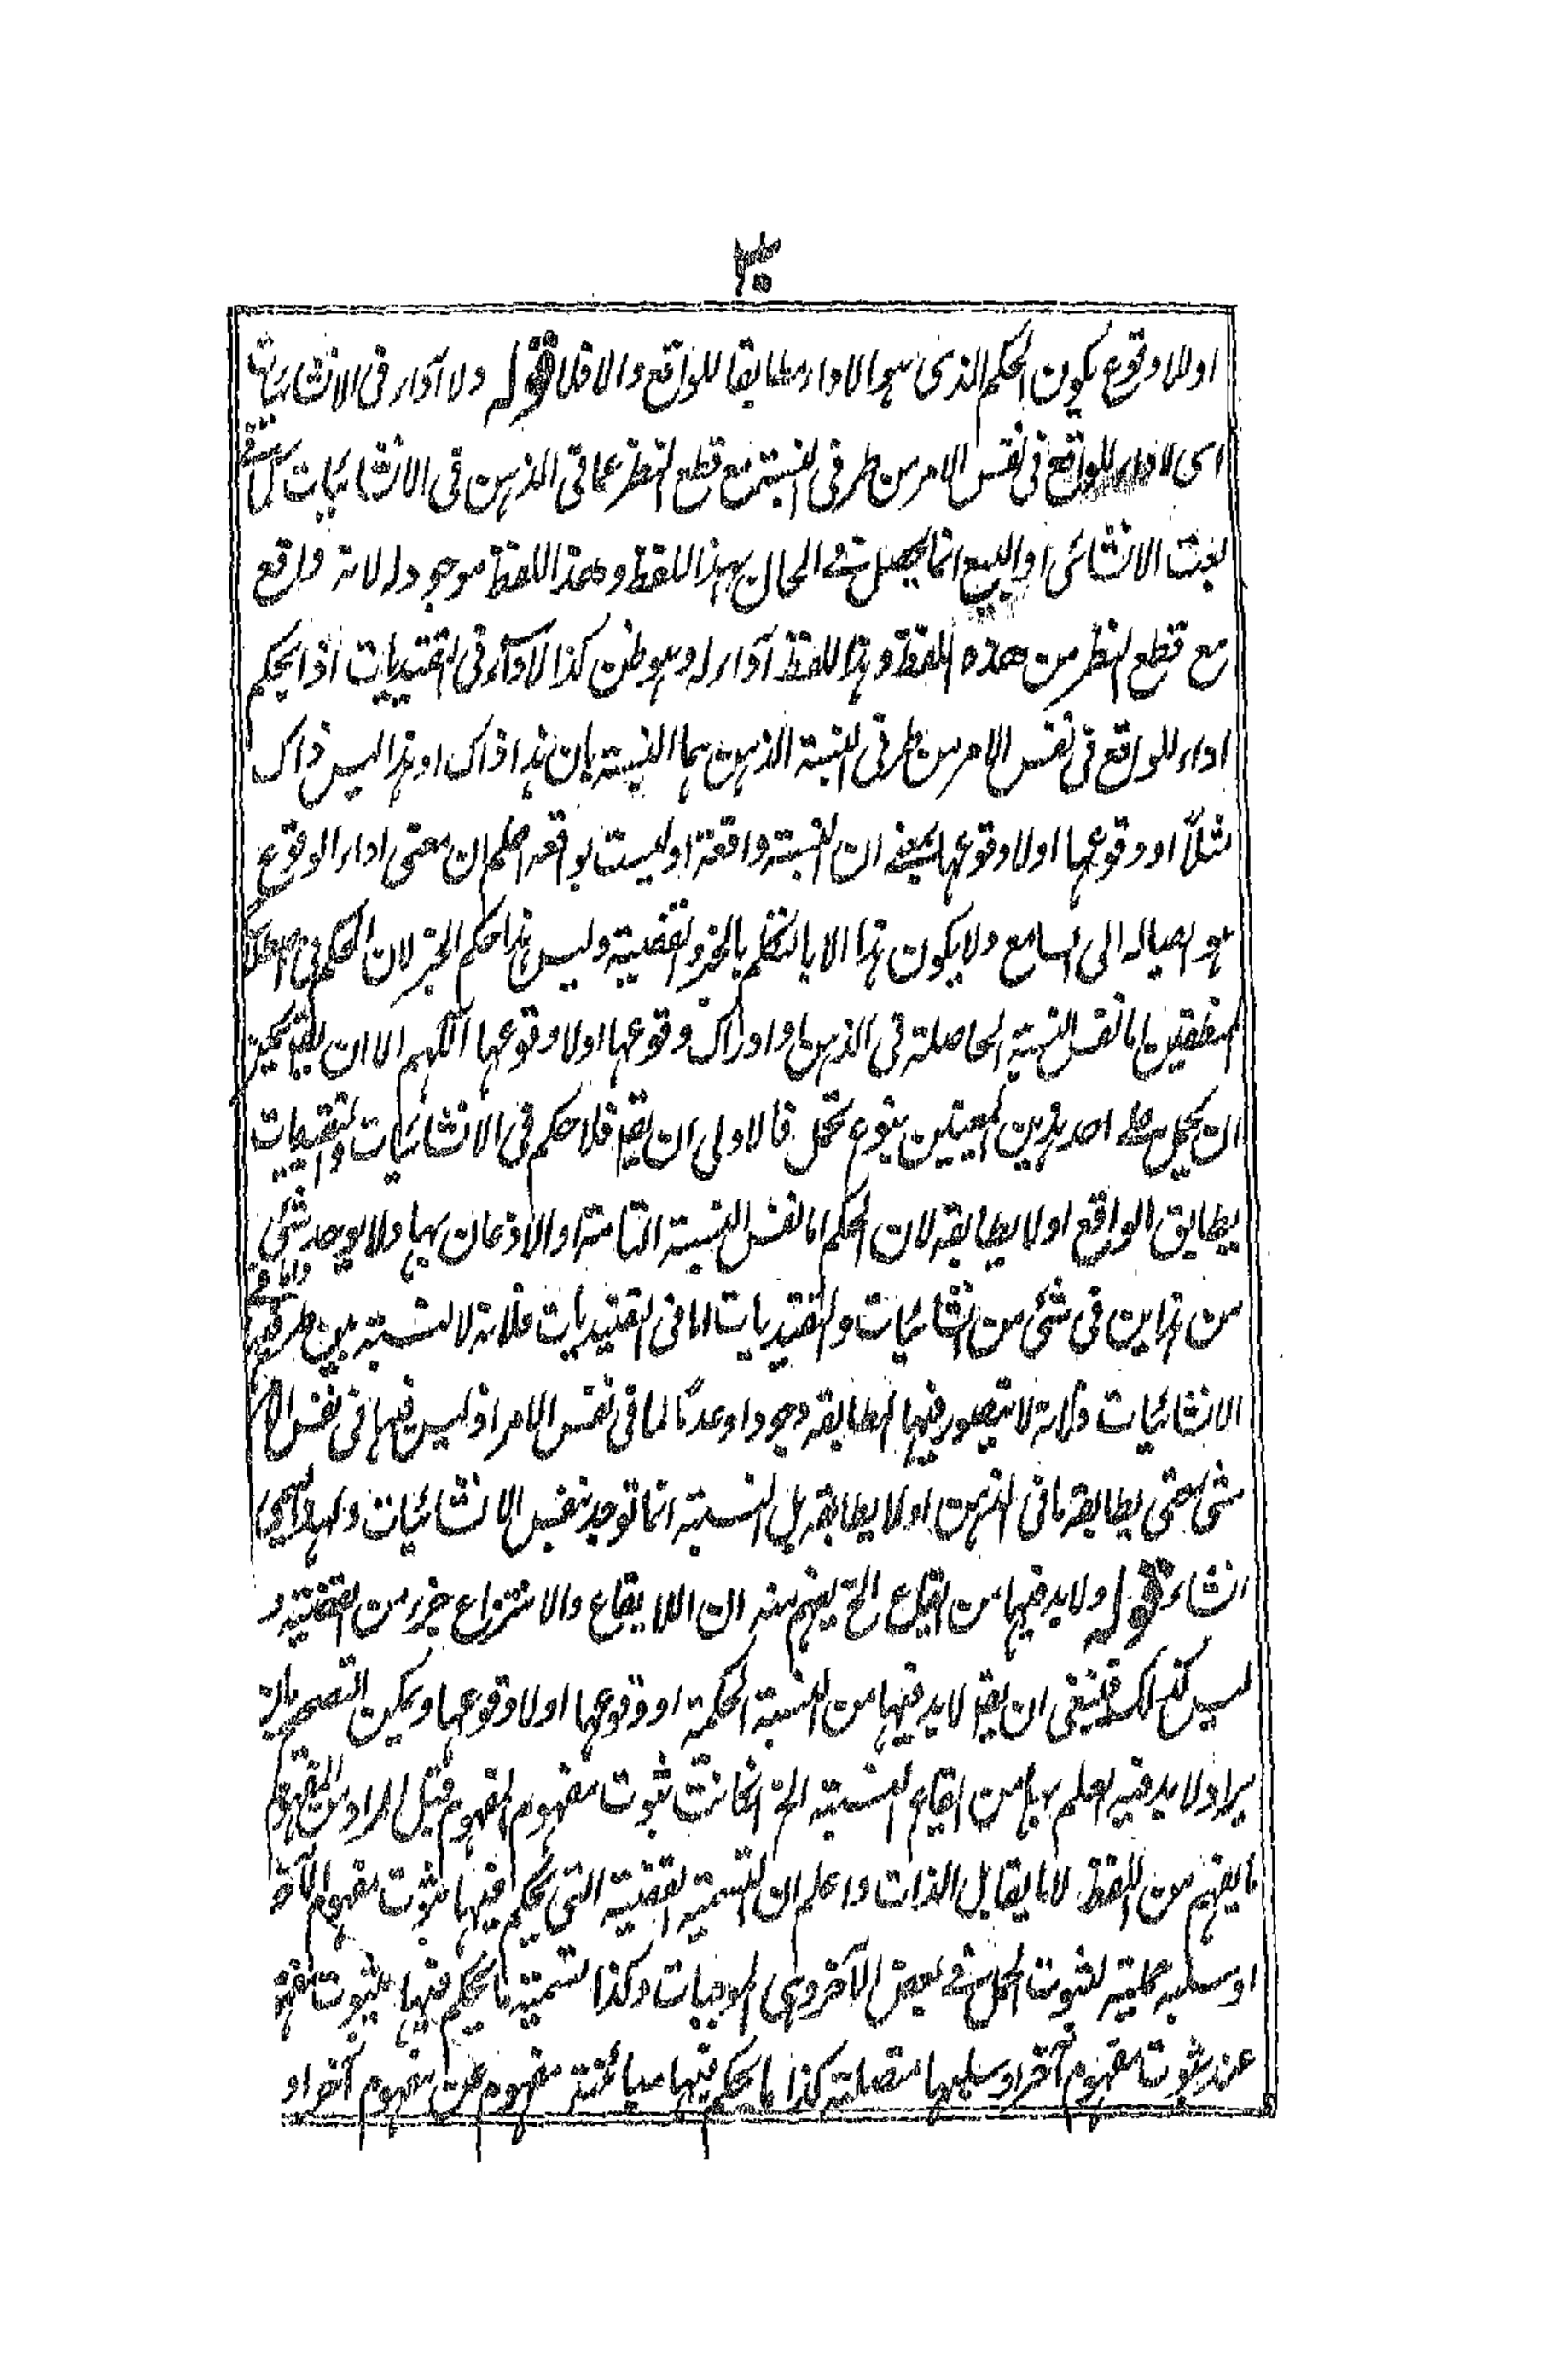 ٣٠
او للا وقوع يكون الحكم الذى هو الاداء مطابقا للواقع والا فلا قوله ولا اداء فى الانشائيات
اى لا اداء للواقع فى نفس الامر من طرفى النسبة مع قطع النظر عما فى الذهن فى الانشائيات
بعت الانشائى اذ البيع انما يحصل فى الحال بهذا اللفظ وهذا اللفظ موجود له لا انه واقع
مع قطع النظر من هذه اللفظ وهذا اللفظ اداء له وهو ظن كذا لا اداء فى التقييديات اذ الحكم
اداء للواقع فى نفس الامر من طرفى النسبة الذهن بها النسبة بان هذا ذاك او هذا ليس ذاك
مثلاً او وقوعها اولا وقوعها بمعنى ان النسبة واقعة او ليست بواقعة اعلم ان معنى اداء الوقوع
هو ايصاله الى السامع ولا يكون هذا الا بالتكلم بالخبر والقضية وليس هذا حكم الخبر لان الحكم فى
المنطقيين اما نفس النسبة الحاصلة فى الذهن او ادراك وقوعها اولا وقوعها اللهم الا ان
ان يحمل على احد هذين المعنيين بنوع تمحل فالاولى ان يقر فلا حكم فى الانشائيات والتقييديات
يطابق الواقع اولا يطابقه لان الحكم اما نفس النسبة التامة او الاذعان بها ولا يوجد شئ
من هذاين فى شئ من انشائيات والتقييديات اما فى التقييديات فلانه لا نسبة بين طرفيها واما فى
الانشائيات فلانه لا يتصور فيها المطابقة وجودا وعدمًا لما فى نفس الامر اذ ليس فيها فى نفس الامر
شئ حتى يطابقه ما فى الذهن اولا يطابقه بل النسبة انما توجد بنفس الانشائيات ولهذا سمى
انشاء قوله ولا بد فيها من ايقاع الخ يفهم منه ان الايقاع والانتزاع جزء من القضية و
ليس كذلك فينبغى ان يقر لا بد فيها من النسبة الحكمية او وقوعها اولا وقوعها ويمكن التصحيح بان
يراد ولا بد فيه لعلم بها من ايقاع النسبة الخ انكانت ثبوت مفهوم لمفهوم قيل المراد من المفهوم
ما يفهم من اللفظ لا ما يقابل الذات واعلم ان تسمية القضية التى يحكم فيها بثبوت مفهوم لآخر
او سلبه حملية لثبوت الحمل فى بعض الآخر وهى الموجبات وكذا تسمية ما يحكم فيها بثبوت مفهوم
عند ثبوت مفهوم آخر او سلبها متصلة كذا ما يحكم فيها مبائنة مفهوم عن مفهوم آخر او